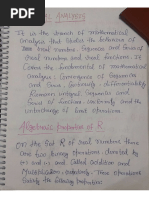 ANALYSIS
It is the branch of mathematical
analysis that studies the behavior of
real number, sequences and series of
real numbers and real functions. It
covers the fundamentals of mathematical
analysis, Convergence of sequences
and Series, differentiability,
Riemann integral, sequences and
Series of functions, uniformity, and
the interchange of limit
operations.
Algebraic Properties of R
On the Set R of real numbers there
are two binary operations, denoted by
+ and . and called addition and
Multiplication respectively. These operations
satisfy the following properties: